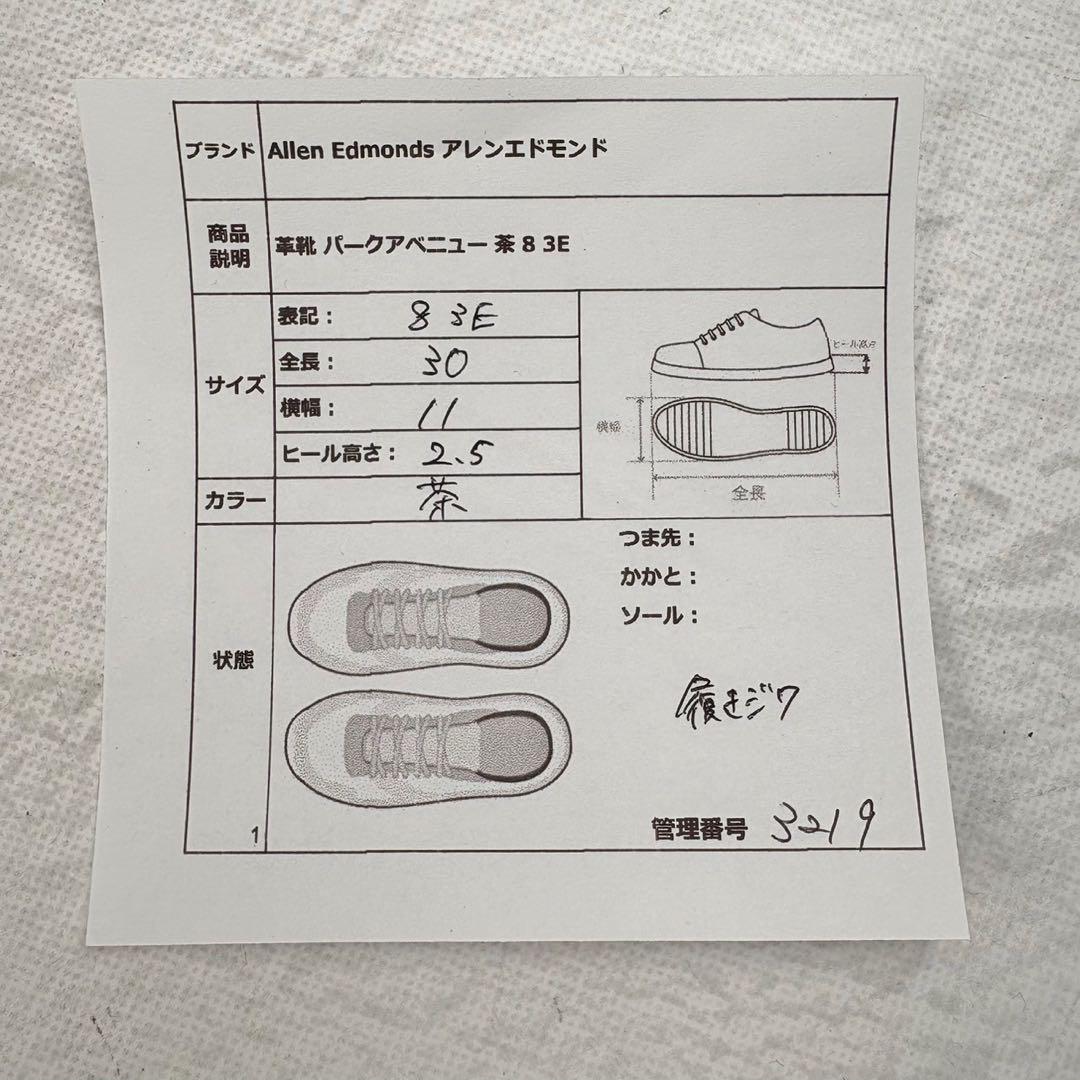 ブランド Allen Edmonds アレンエドモンド
商品
説明
革靴 パークアベニュー 茶 8 3E
サイズ
表記： 8 3E
全長： 30
横幅： 11
ヒール高さ： 2.5
ヒール高さ
横幅
全長
カラー 茶
状態
つま先：
かかと：
ソール：
履きジワ
1
管理番号 3219